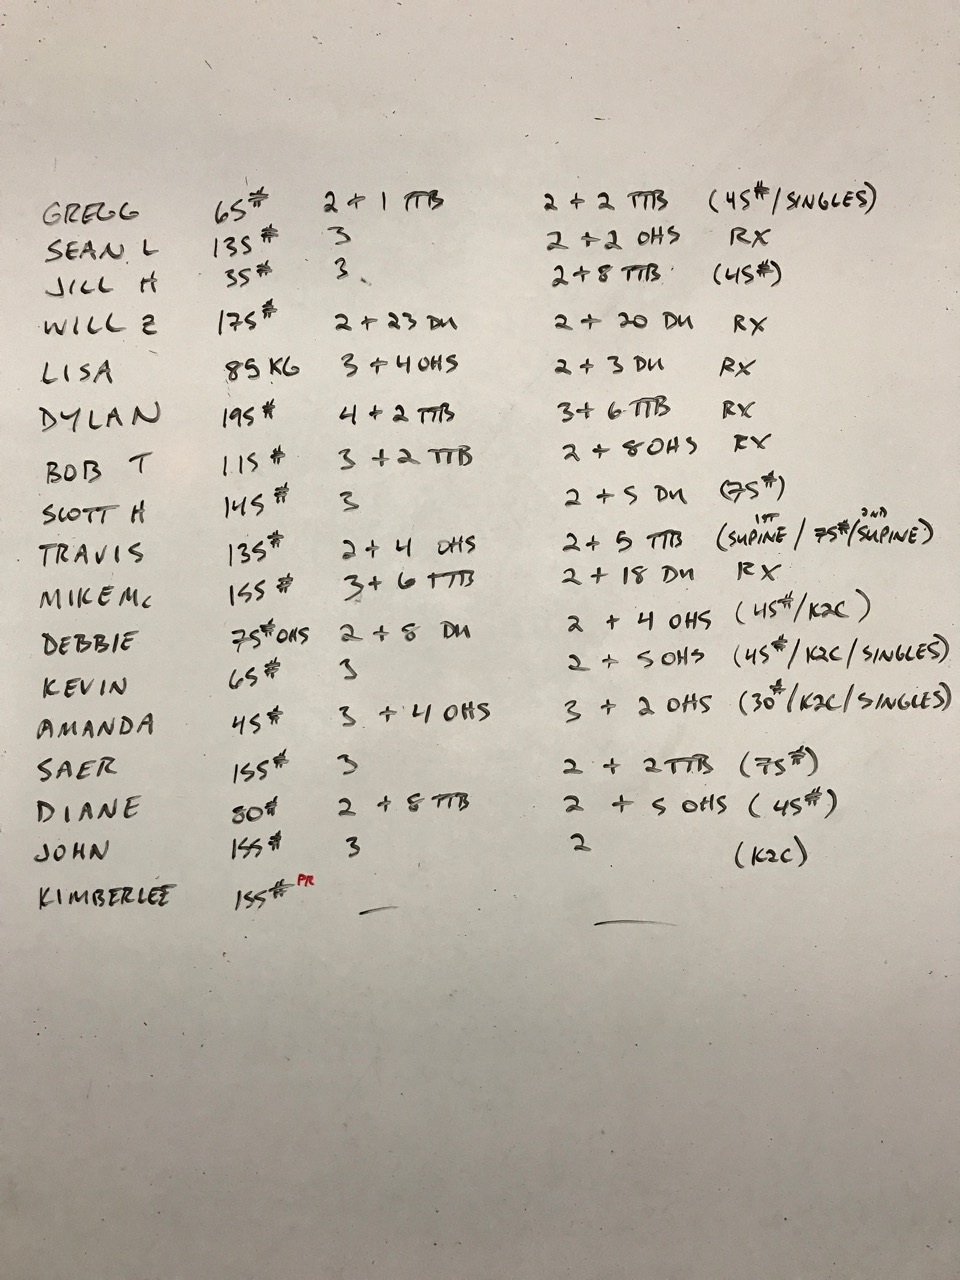 GREGG 65# 2 + 1 TTB 2 + 2 TTB (45#/SINGLES)
SEAN L 135# 3 2 + 2 OHS RX
JILL H 35# 3 2 + 8 TTB (45#)
WILL Z 175# 2 + 23 DU 2 + 20 DU RX
LISA 85 KG 3 + 4 OHS 2 + 3 DU RX
DYLAN 195# 4 + 2 TTB 3 + 6 TTB RX
BOB T 115# 3 + 2 TTB 2 + 8 OHS RX
SCOTT H 145# 3 2 + 5 DU (75#)
TRAVIS 135# 2 + 4 OHS 2 + 5 TTB (SUPINE 1ST / 75#/SUPINE 2ND)
MIKE Mc 155# 3 + 6 TTB 2 + 18 DU RX
DEBBIE 75# OHS 2 + 8 DU 2 + 4 OHS (45#/K2C)
KEVIN 65# 3 2 + 5 OHS (45#/K2C/SINGLES)
AMANDA 45# 3 + 4 OHS 3 + 2 OHS (30#/K2C/SINGLES)
SAER 155# 3 2 + 2 TTB (75#)
DIANE 80# 2 + 8 TTB 2 + 5 OHS (45#)
JOHN 155# 3 2 (K2C)
KIMBERLEE 155# PR — —